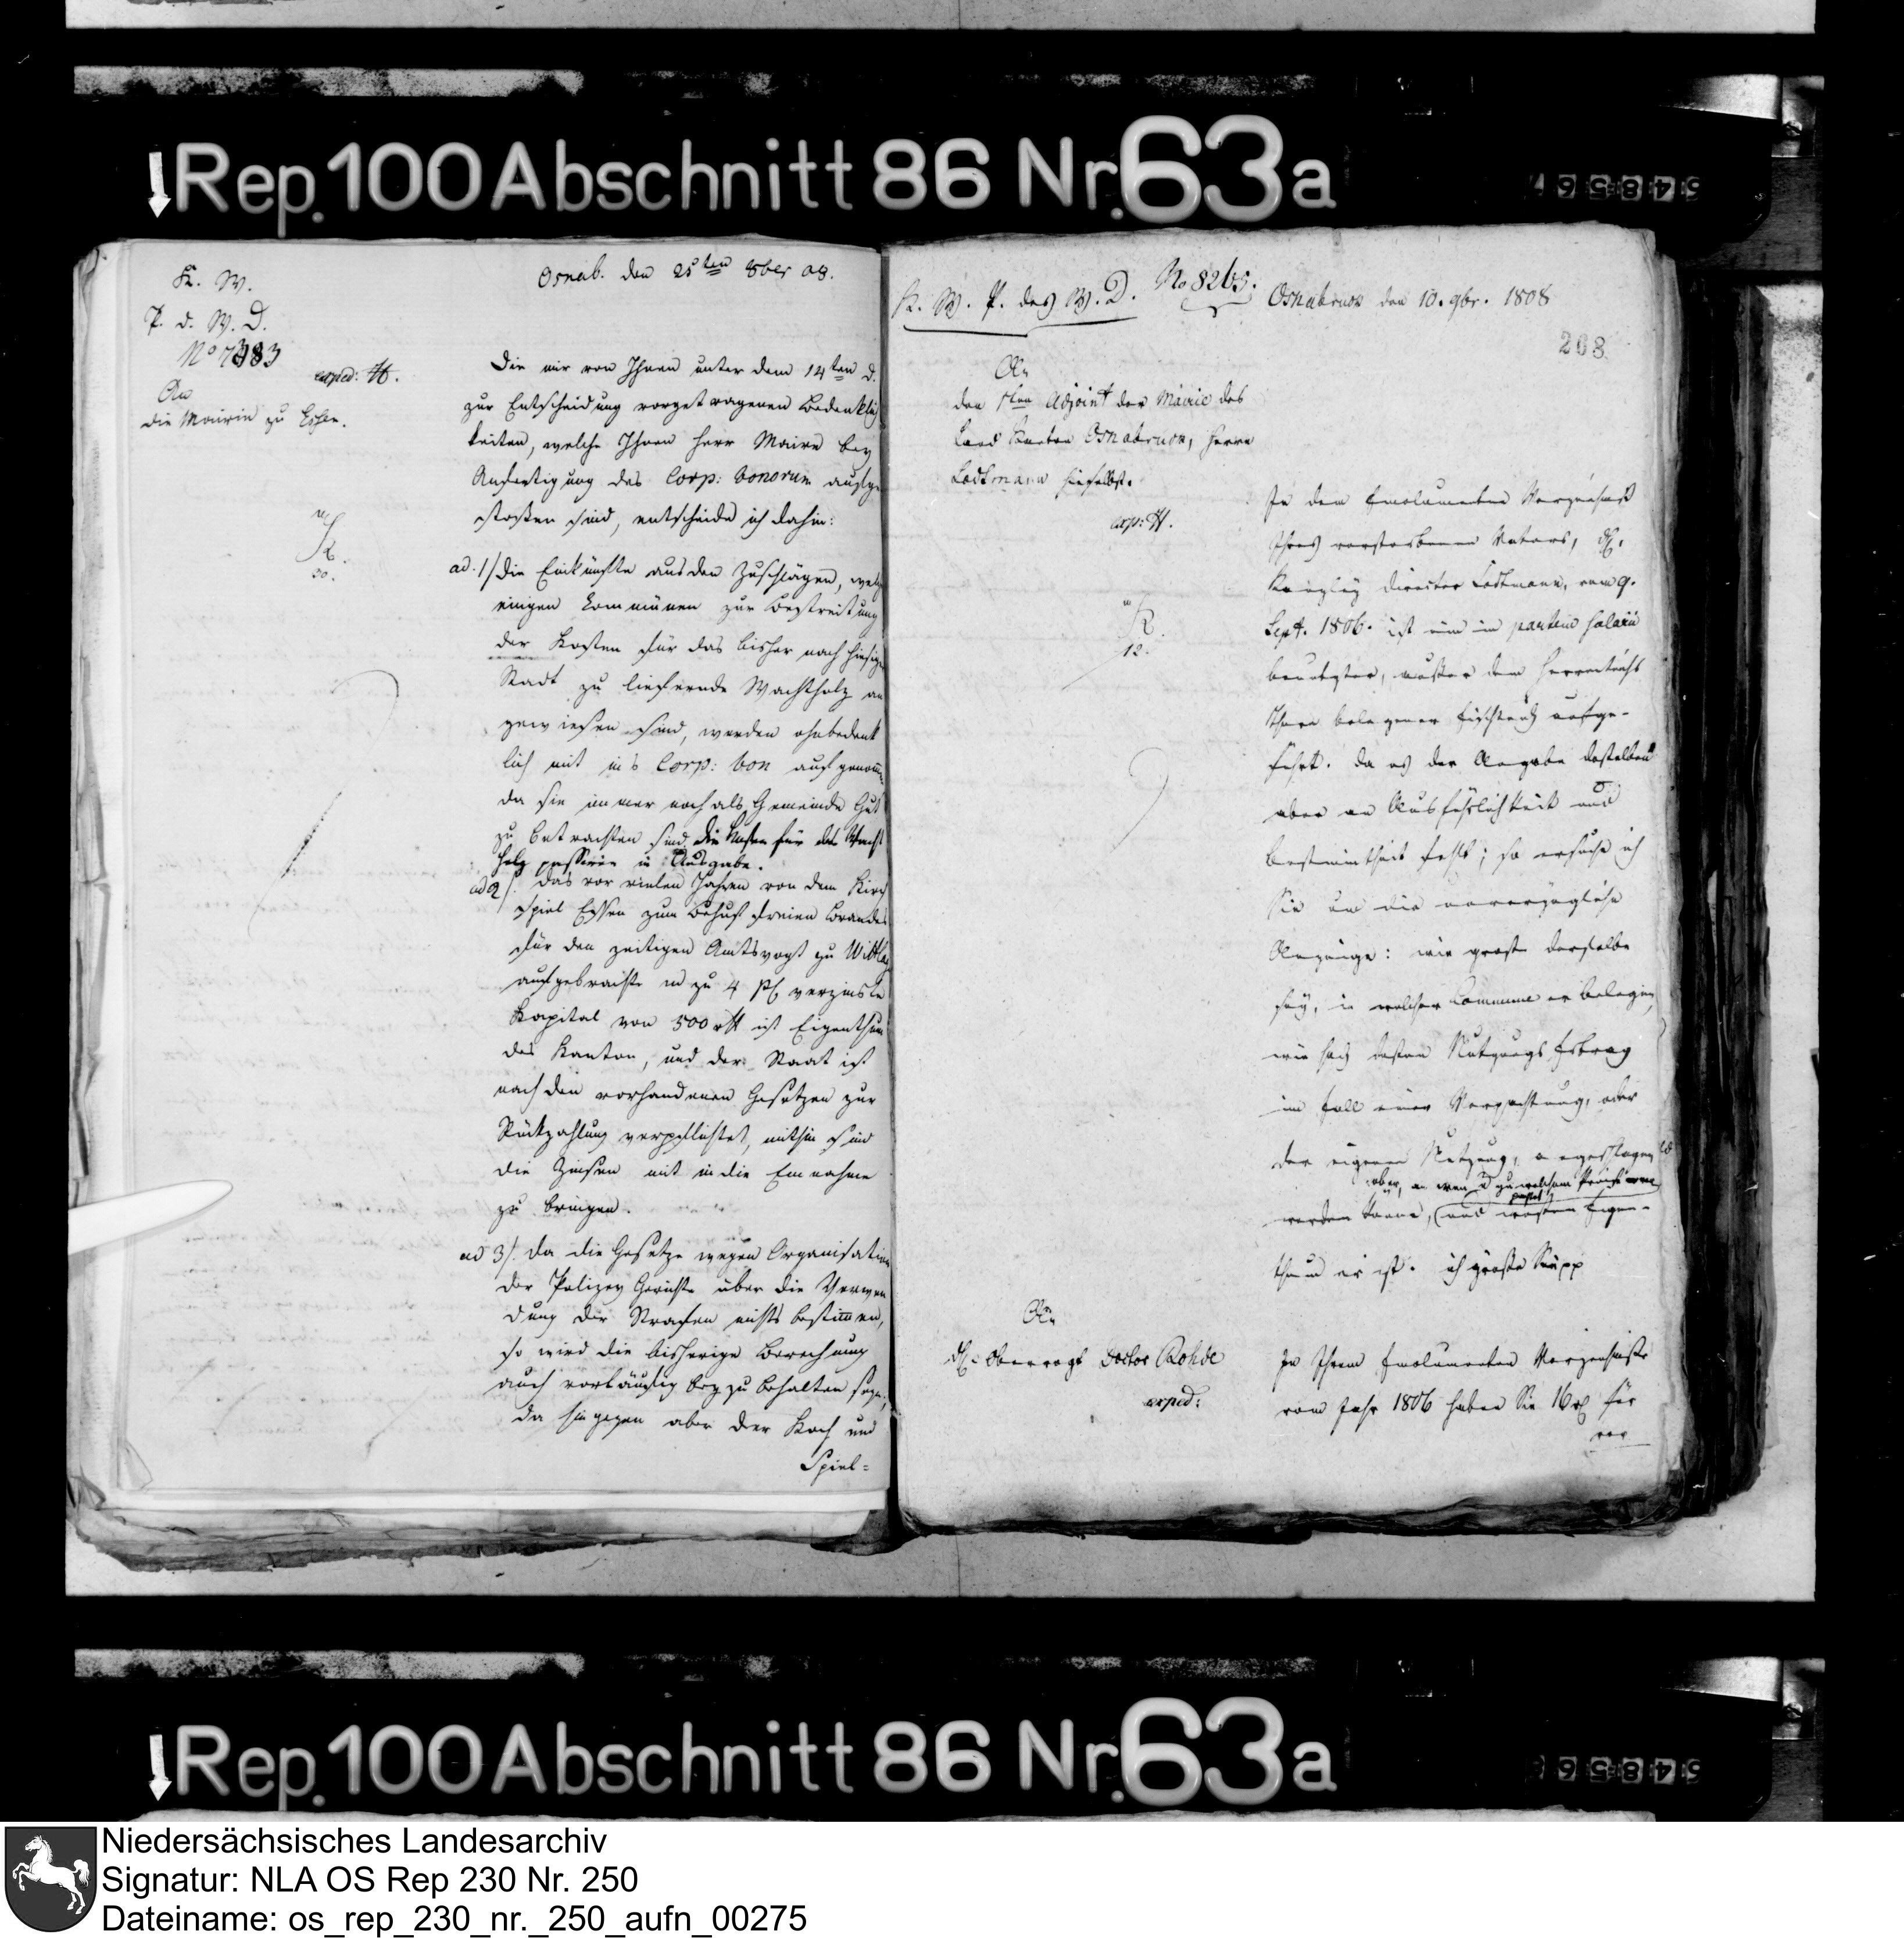 ↓Rep. 100 Abschnitt 86 Nr. 63a
K. W.
P. d. W. D.
No 7983
exped: H.
An
die Mairie zu Essen.
Osnab. den 25ten 8ber 08.
Die mir von Ihnen unter dem 14ten d.
zur Entscheidung vorgetragenen Bedenklich
keiten, welche Ihnen Herr Maire bey
Anfertigung des Corp: bonorum aufge
stoßen sind, entscheide ich dahin:
ad. 1/ die Einkünfte aus den Zuschlägen, welche
einigen Kommünen zur Bestreitung
der Kosten für das bisher nach hiesiger
Stadt zu liefernde Wachtholz an
gewiesen sind, werden ohnbedenk
lich mit in's Corp: bon aufgenomen
da sie immer noch als Gemeinde Gut
zu betrachten sind. die Kosten für das Wacht
holz passiren in Ausgabe.
ad 2/. Das vor vielen Jahren von dem Kirch
spiel Essen zum Behuf freien Brandes
für den zeitigen Amtsvogt zu Wittlage
aufgebrachte zu 4 pC verzinste
Kapital von 500 rt ist Eigenthum
des Kanton, und der Staat ist
nach den vorhandenen Gesetzen zur
Rückzahlung verpflichtet, mithin sind
die Zinsen mit in die Einnahme
zu bringen.
ad 3/. da die Gesetze wegen Organisation
der Polizey Gerichte über die Verwen
dung der Strafen nichts bestimen,
so wird die bisherige Berechnung
auch vorläufig bey zu behalten seyn,
da hingegen aber der Koch und
Spiel=
K. W. P. des W. D. No 8265.
Osnabruck den 10. 9br. 1808
208
An
den 1ten Adjoint der Mairie des
Land Kanton Osnabruck, Herrn
Lodtmann hieselbst.
exp: H.
12.
In dem Emolumenten Verzeichniß
Ihres verstorbenen Vaters, H.
Kanzley director Lodtmann, vom 9.
Sept. 1806. ist ein in partem salarii
benutzter, außer dem Herrenteichs
Thore belegener Fischteich aufge-
führt. da es der Angabe desselben
aber an Ausführlichkeit und
Bestimtheit fehlt; so ersuche ich
Sie um die unverzügliche
Anzeige: wie groß derselbe
sey, in welcher Commune er belegen,
wie hoch dessen Nutzungs Ertrag
im Fall einer Verpachtung, oder
der eigenen Nutzung, angeschlagen
aber, an wen u zu welchem Preise
werden könne, und wessen Eigen-
thum er ist. ich grüße
An
H. Obervogt Doctor Rohde
exped:
In Ihrem Emolumenten Verzeichnisse
vom Jahr 1806 haben Sie 16 rt für
↓Rep. 100 Abschnitt 86 Nr. 63a
Niedersächsisches Landesarchiv
Signatur: NLA OS Rep 230 Nr. 250
Dateiname: os_rep_230_nr._250_aufn_00275